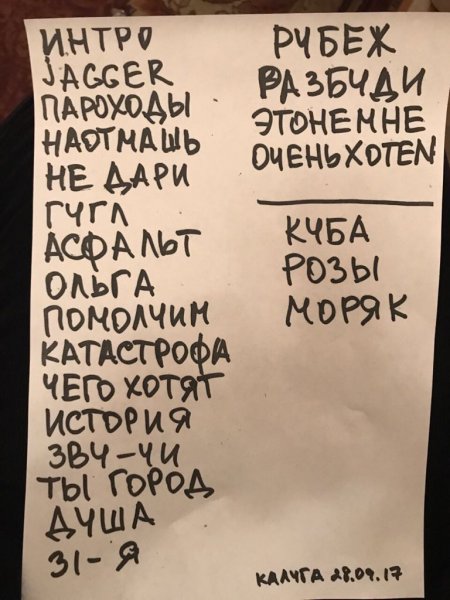 ИНТРО
JAGGER
ПАРОХОДЫ
НАОТМАШЬ
НЕ ДАРИ
ГУГЛ
АСФАЛЬТ
ОЛЬГА
ПОМОЛЧИМ
КАТАСТРОФА
ЧЕГО ХОТЯТ
ИСТОРИЯ
ЗВУ-ЧИ
ТЫ ГОРОД
ДУША
31-Я
РУБЕЖ
РАЗБУДИ
ЭТОНЕМНЕ
ОЧЕНЬХОТЕЛ
КУБА
РОЗЫ
МОРЯК
КАЛУГА 28.09.17